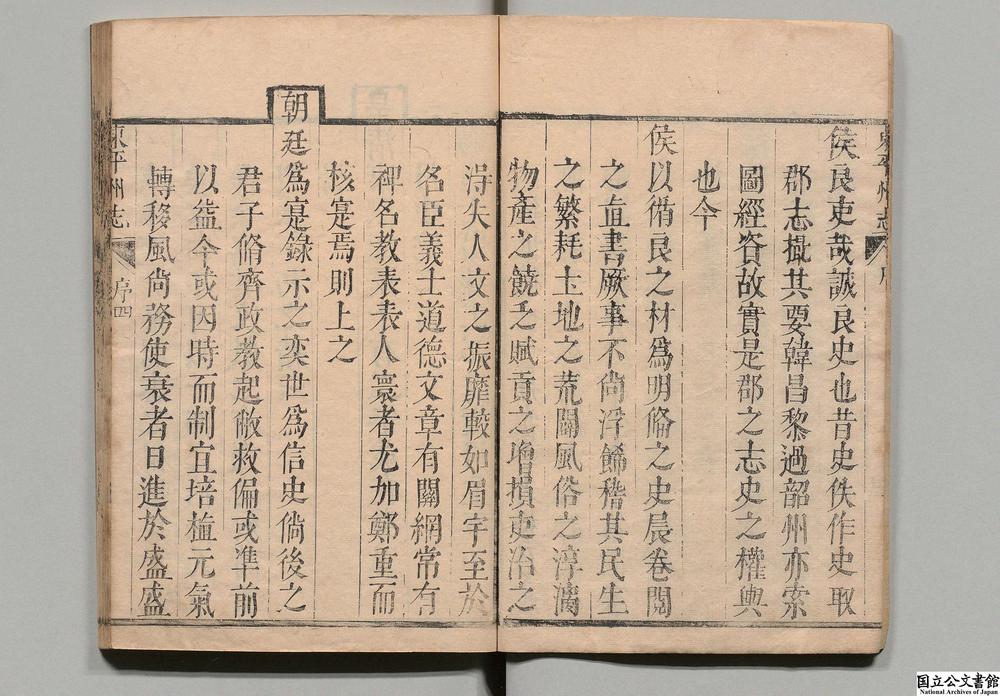 侯良吏哉誠良史也昔史佚作史取
郡志撮其要韓昌黎過韶州亦索
圖經咨故實是郡之志史之權輿
也今
侯以循良之材爲明脩之史晨卷閱
之直書厥事不尙浮餙稽其民生
之繁耗土地之荒闢風俗之淳漓
物產之饒乏賦貢之增損吏治之
淂失人文之振靡較如眉宇至於
名臣義士道德文章有關綱常有
裨名教表表人寰者尤加鄭重而
核寔焉則上之
朝廷爲寔錄示之奕世爲信史倘後之
君子脩齊政教起敝救偏或準前
以益今或因時而制宜培植元氣
轉移風尙務使衰者日進於盛盛
東平州志
序四
国立公文書館
National Archives of Japan